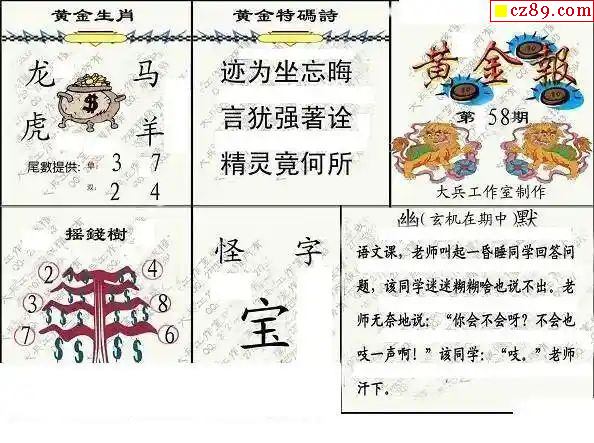 cz89.com
黄金生肖
龙 马
虎 羊
尾數提供: 单: 3 7
双: 2 4
黄金特碼詩
迹为坐忘晦
言犹强著诠
精灵竟何所
黄金報
第58期
大兵工作室制作
摇錢樹
2 4
3 8
7 6
怪字
宝
幽(玄机在期中)默
语文课，老师叫起一昏睡同学回答问
题，该同学迷迷糊糊啥也说不出。老
师无奈地说：“你会不会呀？不会也
吱一声啊！”该同学：“吱。”老师
汗下。